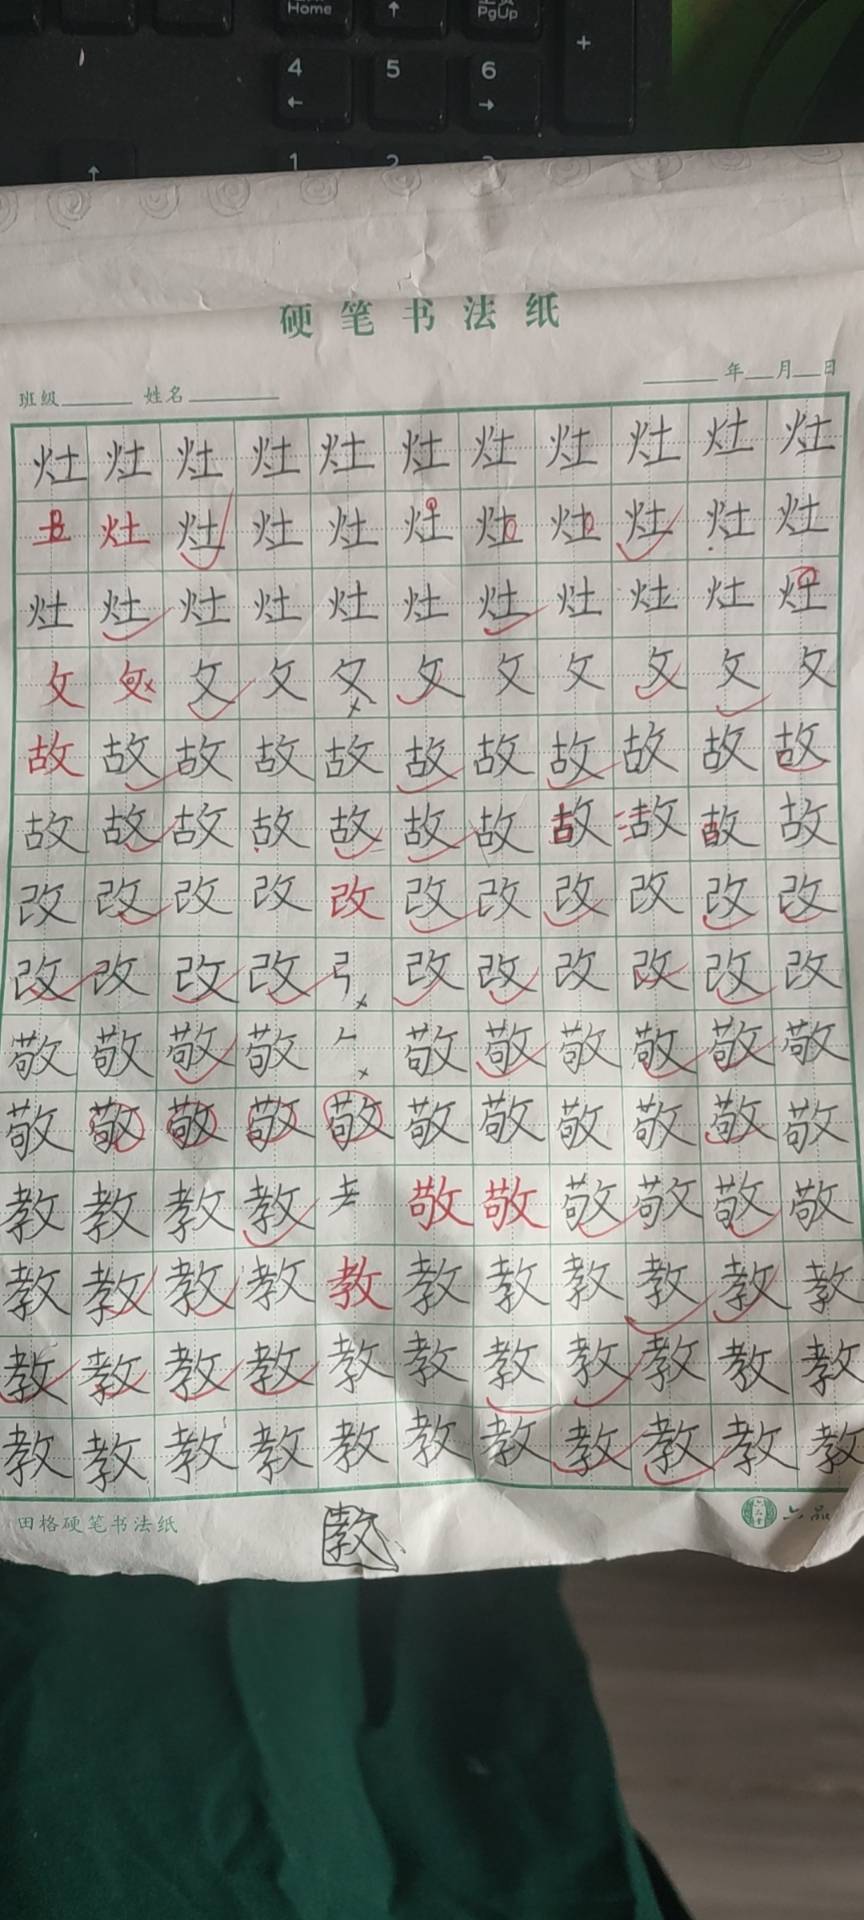 Home ↑ PgUp
4 5 6 +
← →
↑ 1 2 3
硬笔书法纸
班级 姓名 年 月 日
灶 灶 灶 灶 灶 灶 灶 灶 灶 灶 灶
灶 灶 灶 灶 灶 灶 灶 灶 灶 灶
灶 灶 灶 灶 灶 灶 灶 灶 灶 灶 灶
攵 攵 攵 攵 攵 攵 攵 攵 攵 攵 攵
故 故 故 故 故 故 故 故 故 故 故
故 故 故 故 故 故 故 故 故 故 故
改 改 改 改 改 改 改 改 改 改 改
改 改 改 改 改 改 改 改 改 改
敬 敬 敬 敬 敬 敬 敬 敬 敬 敬
敬 敬 敬 敬 敬 敬 敬 敬 敬 敬 敬
教 教 教 教 敬 敬 敬 敬 敬 敬
教 教 教 教 教 教 教 教 教 教 教
教 教 教 教 教 教 教 教 教 教 教
教 教 教 教 教 教 教 教 教 教 教
田格硬笔书法纸 教 六品